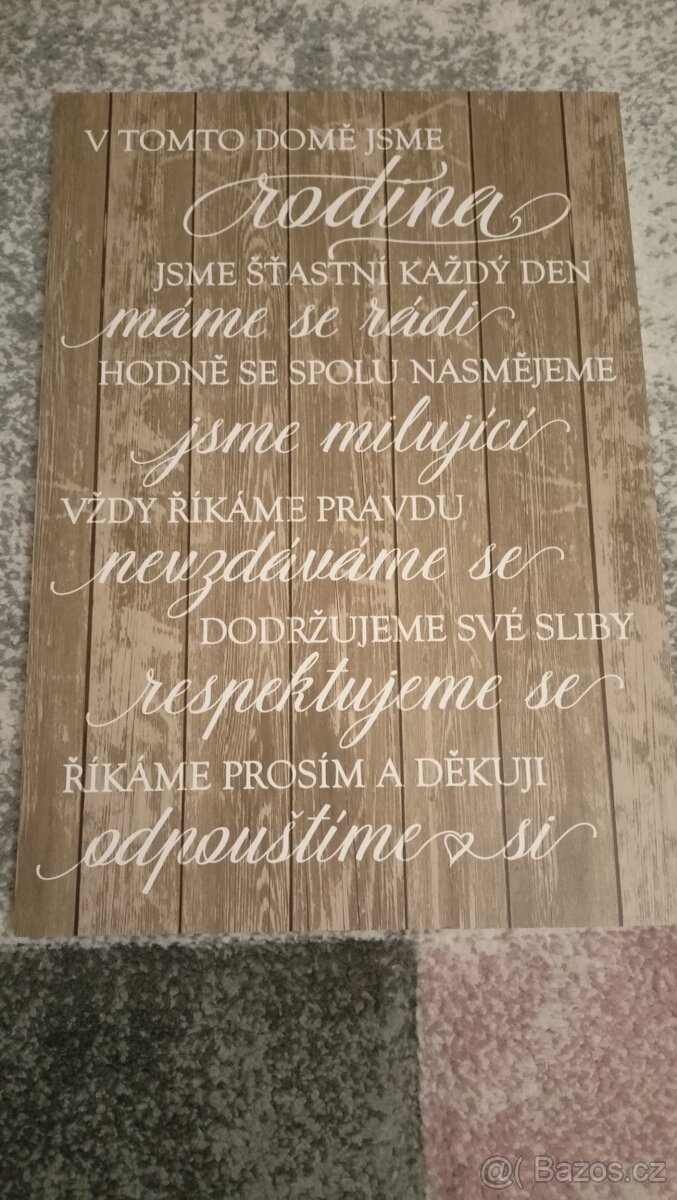 V TOMTO DOMĚ JSME
rodina
JSME ŠŤASTNÍ KAŽDÝ DEN
máme se rádi
HODNĚ SE SPOLU NASMĚJEME
jsme milující
VŽDY ŘÍKÁME PRAVDU
nevzdáváme se
DODRŽUJEME SVÉ SLIBY
respektujeme se
ŘÍKÁME PROSÍM A DĚKUJI
odpouštíme si
@( Bazos.cz